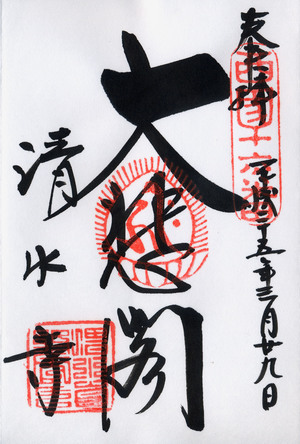 奉拝
西国十六番
平成二十五年三月廿九日
大悲閣
清水寺